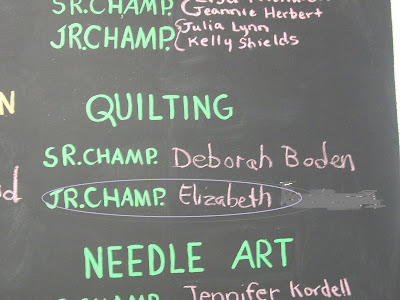 SR.CHAMP.
Jeannie Herbert
JR.CHAMP. Julia Lynn
Kelly Shields
QUILTING
SR.CHAMP. Deborah Boden
JR.CHAMP. Elizabeth
NEEDLE ART
Jennifer Kordell